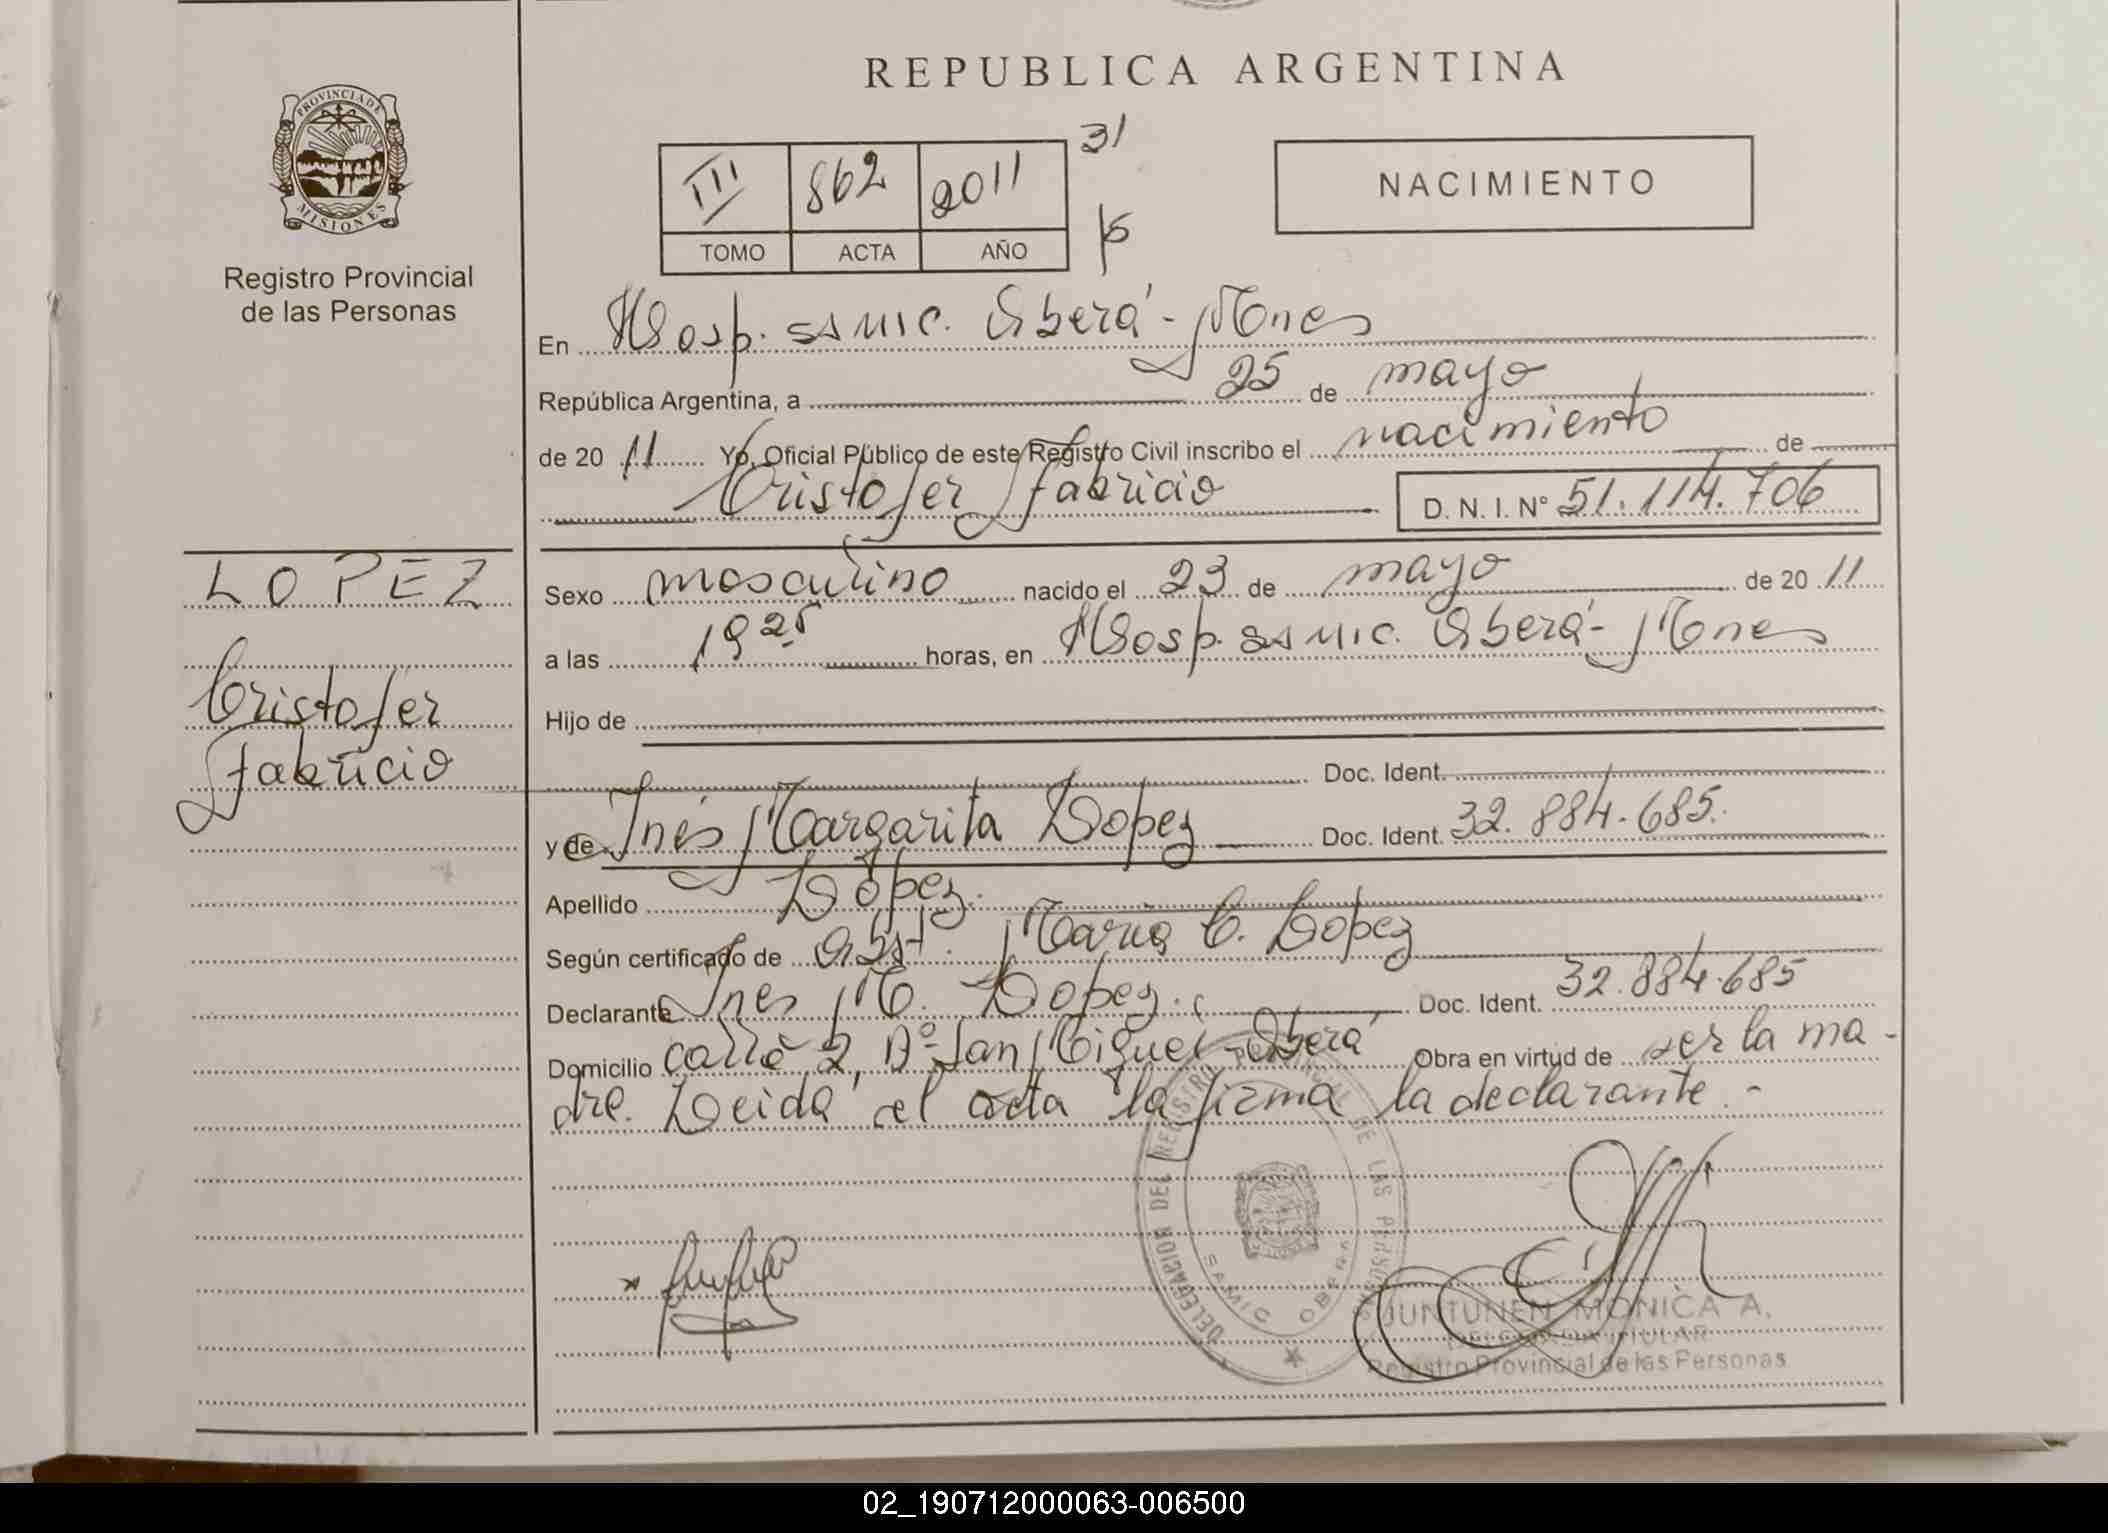 PROVINCIA DE
MISIONES
Registro Provincial
de las Personas
LOPEZ
Cristofer
Fabricio
REPUBLICA ARGENTINA
III 862 2011 31
TOMO ACTA AÑO 5
NACIMIENTO
En Hosp. SAMIC. Oberá - Mnes
República Argentina, a 25 de mayo
de 20 11 Yo, Oficial Público de este Registro Civil inscribo el nacimiento de
Cristofer Fabricio D. N. I. Nº 51.114.706
Sexo masculino nacido el 23 de mayo de 20 11
a las 19 25 horas, en Hosp. SAMIC. Oberá - Mnes
Hijo de
Doc. Ident.
y de Inés Margarita Lopez Doc. Ident. 32.884.685.
Apellido López.
Según certificado de Obst. Maria C. Lopez
Declarante Ines M. Lopez. Doc. Ident. 32.884.685
Domicilio calle 2, Bº San Miguel - Oberá Obra en virtud de ser la ma-
dre. Leida el acta la firma la declarante. -
DELEGACION DEL REGISTRO PROVINCIAL DE LAS PERSONAS
SAMIC OBERA
JUNTUNEN MONICA A.
DELEGADA TITULAR
Registro Provincial de las Personas
02_190712000063-006500